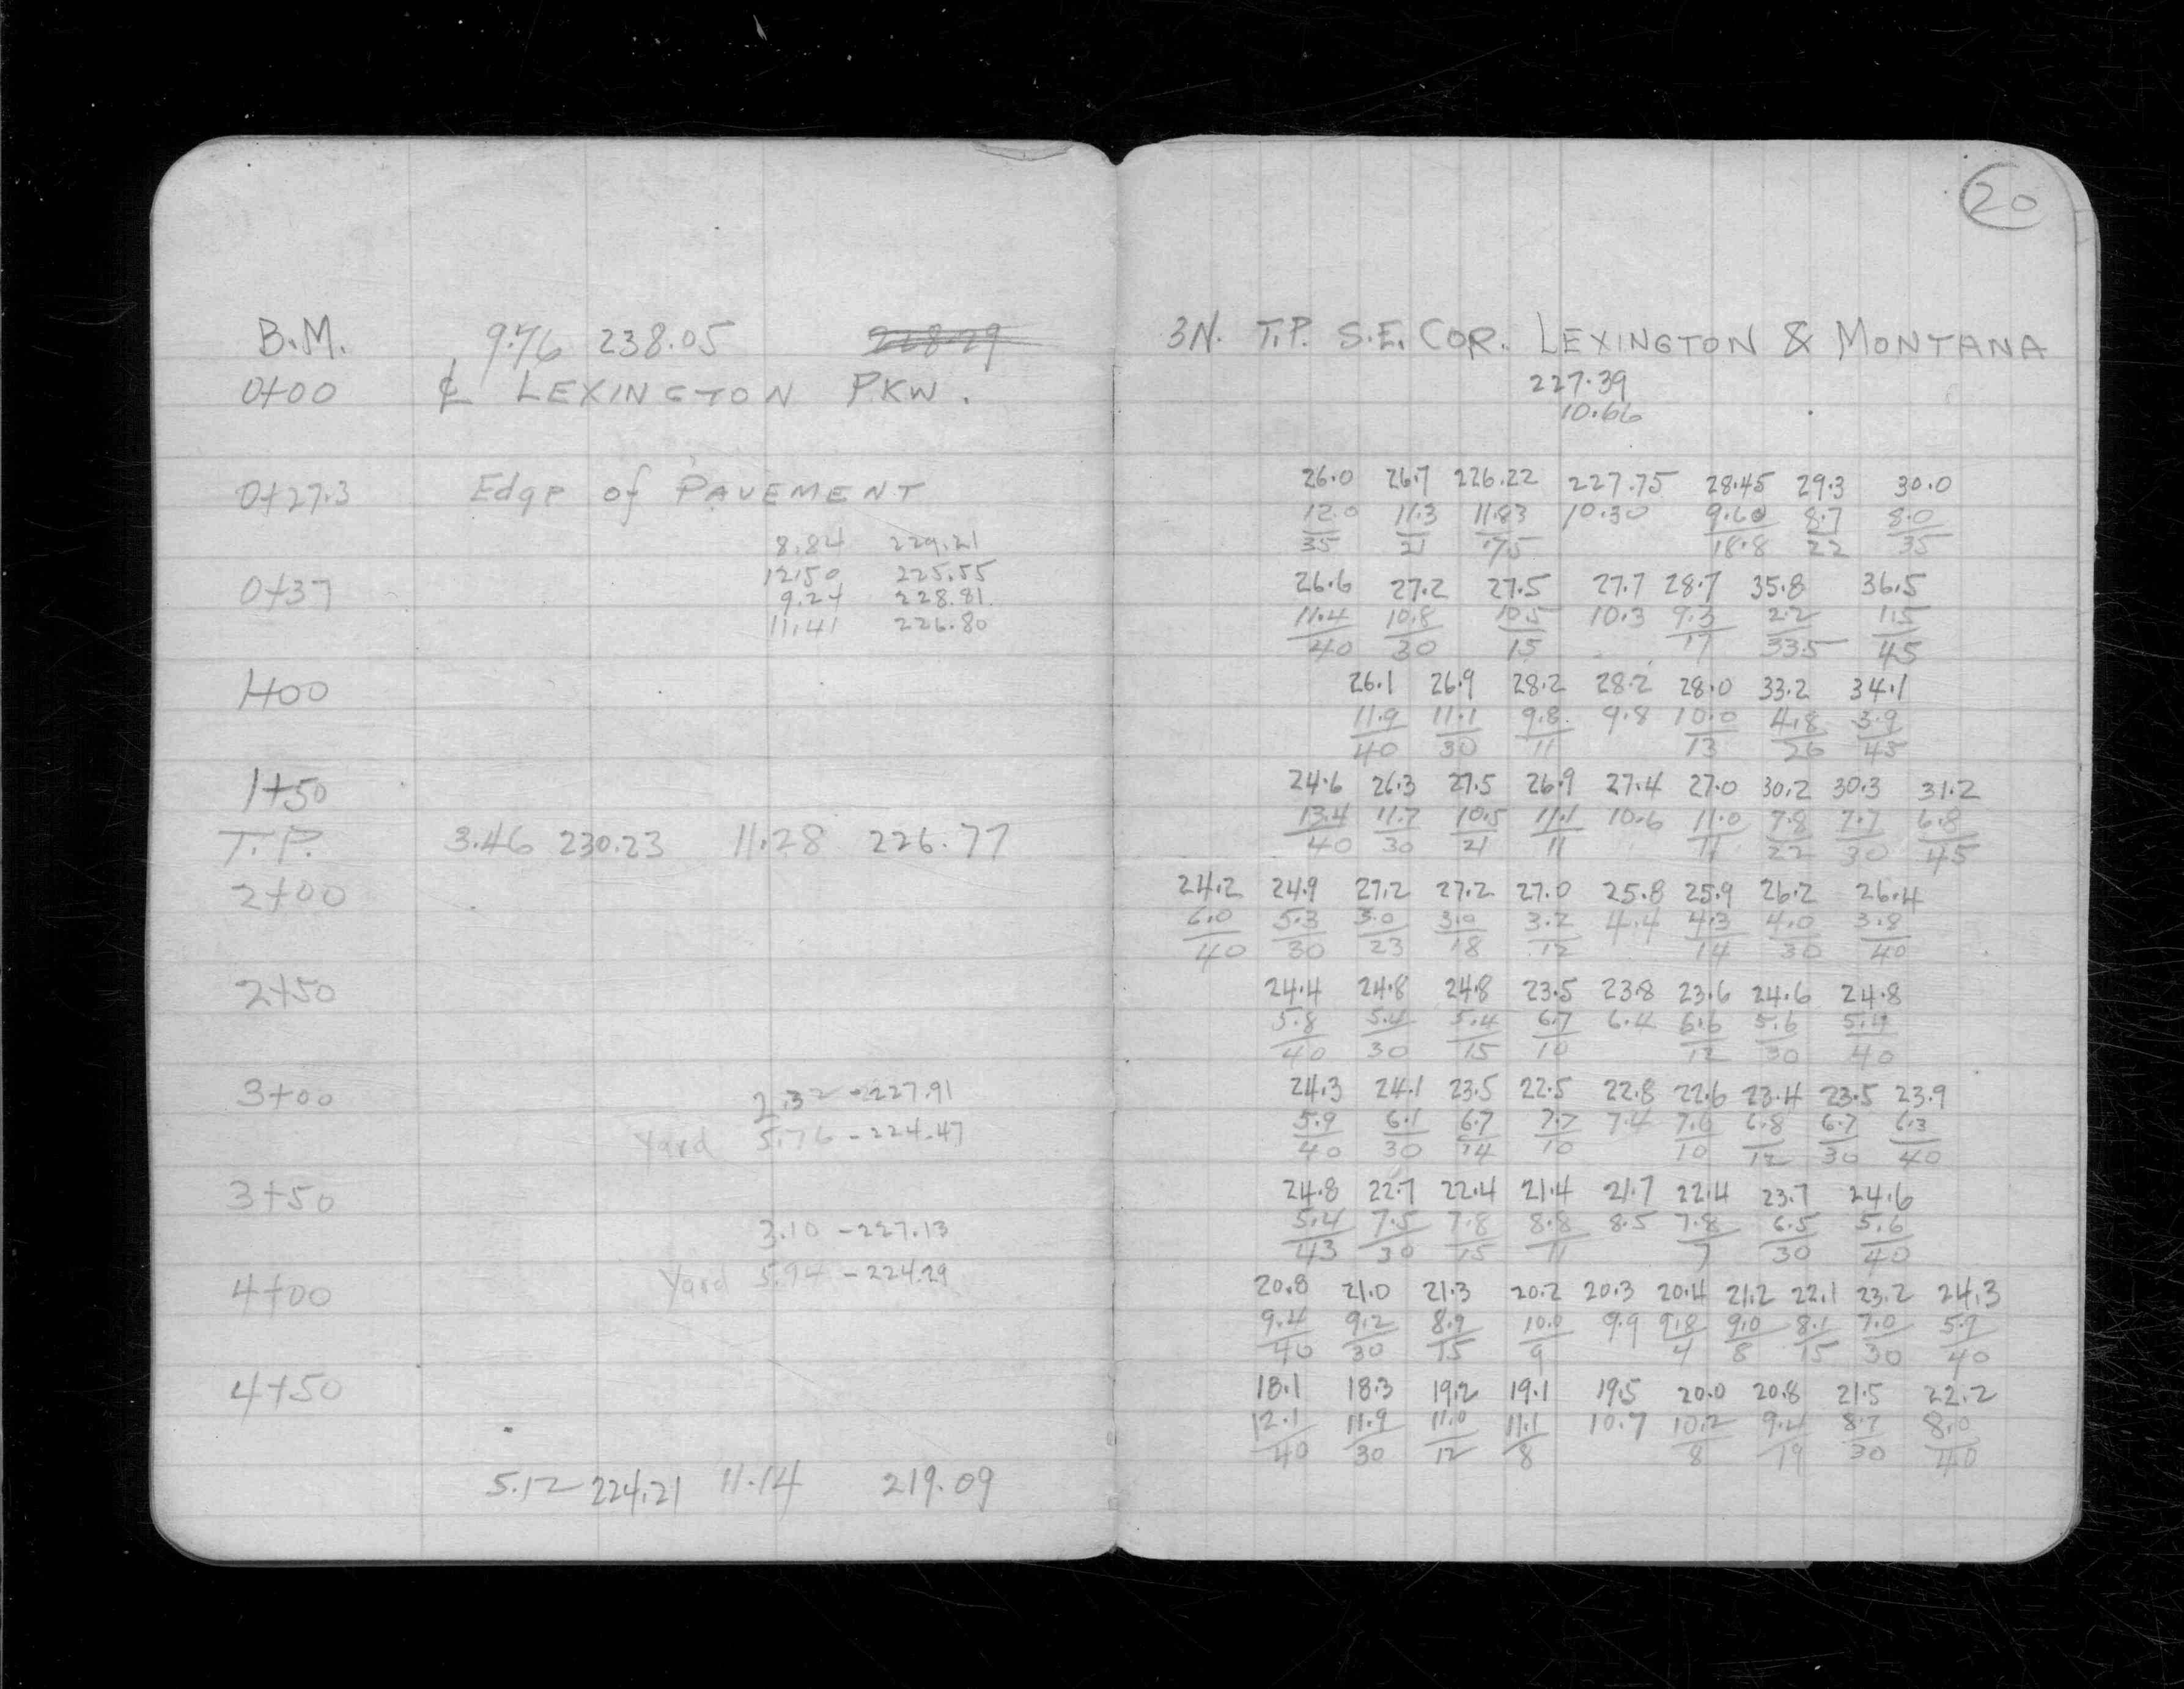 20
B.M. 9.76 238.05 228.29 3N. T.P. S.E. COR. LEXINGTON & MONTANA
0+00 ℄ LEXINGTON PKW. 227.39
10.66
0+27.3 Edge of PAVEMENT 26.0 26.7 226.22 227.75 28.45 29.3 30.0
12.0 11.3 11.83 10.30 9.60 8.7 8.0
8.84 229.21 35 21 .75 18.8 22 35
12.50 225.55
0+37 9.24 228.81 26.6 27.2 27.5 27.7 28.7 35.8 36.5
11.41 226.80 11.4 10.8 10.5 10.3 9.3 2.2 1.5
40 30 15 17 33.5 45
1+00 26.1 26.9 28.2 28.2 28.0 33.2 34.1
11.9 11.1 9.8 9.8 10.0 4.8 3.9
40 30 11 13 26 45
1+50 24.6 26.3 27.5 26.9 27.4 27.0 30.2 30.3 31.2
T.P. 3.46 230.23 11.28 226.77 13.4 11.7 10.5 11.1 10.6 11.0 7.8 7.7 6.8
40 30 21 11 11 22 30 45
2+00 24.2 24.9 27.2 27.2 27.0 25.8 25.9 26.2 26.4
6.0 5.3 3.0 3.0 3.2 4.4 4.3 4.0 3.8
40 30 23 18 12 14 30 40
2+50 24.4 24.8 24.8 23.5 23.8 23.6 24.6 24.8
5.8 5.4 5.4 6.7 6.4 6.6 5.6 5.4
40 30 15 10 12 30 40
3+00 2.32 - 227.91 24.3 24.1 23.5 22.5 22.8 22.6 23.4 23.5 23.9
Yard 5.76 - 224.47 5.9 6.1 6.7 7.7 7.4 7.6 6.8 6.7 6.3
40 30 14 10 10 12 30 40
3+50 24.8 22.7 22.4 21.4 21.7 22.4 23.7 24.6
3.10 - 227.13 5.4 7.5 7.8 8.8 8.5 7.8 6.5 5.6
43 30 15 11 7 30 40
Yard 5.94 - 224.29
4+00 20.8 21.0 21.3 20.2 20.3 20.4 21.2 22.1 23.2 24.3
9.4 9.2 8.9 10.0 9.9 9.8 9.0 8.1 7.0 5.9
40 30 15 9 4 8 15 30 40
4+50 18.1 18.3 19.2 19.1 19.5 20.0 20.8 21.5 22.2
12.1 11.9 11.0 11.1 10.7 10.2 9.4 8.7 8.0
40 30 12 8 8 19 30 40
5.12 224.21 11.14 219.09